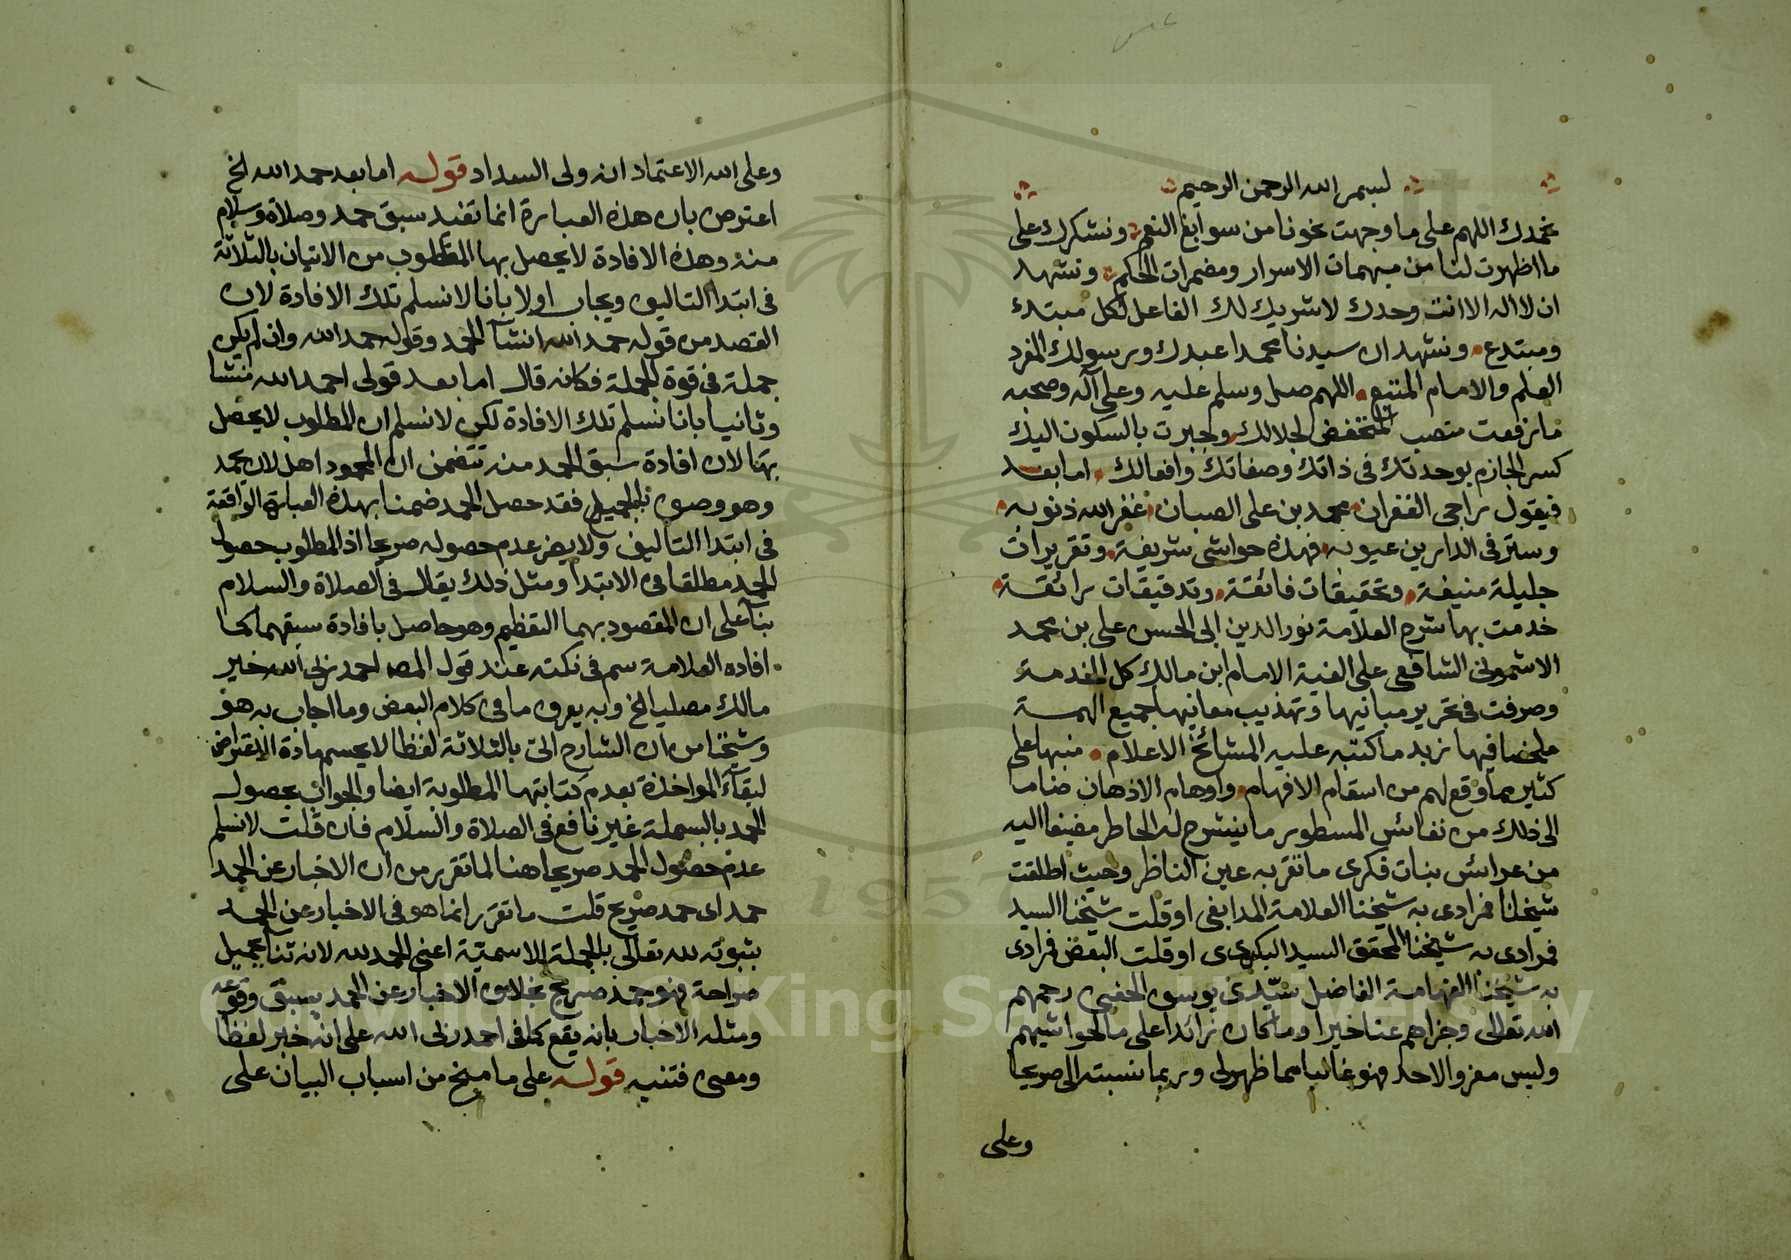 بسم الله الرحمن الرحيم
نحمدك اللهم على ما وجهت نحونا من سوابغ النعم ونشكرك على
ما اظهرت لنا من مبهمات الاسرار ومضمرات الحكم ونشهد
ان لا اله الا انت وحدك لا شريك لك الفاعل لكل مبتدء
ومبتدع ونشهد ان سيدنا محمدا عبدك ورسولك المفرد
العلم والامام المتبع اللهم صل وسلم عليه وعلى آله وصحبه
ما رفعت منصب المنخفض لجلالك وجبرت بالسكون اليك
كسر الجازم بوحدتك في ذاتك وصفاتك وافعالك اما بعد
فيقول راجى الغفران محمد بن على الصبان غفر الله ذنوبه
وستر في الدارين عيوبه فهذه حواشى شريفة وتقريرات
جليلة منيفة وتحقيقات فائقة وتدقيقات رائقة
خدمت بها شرح العلامة نور الدين ابى الحسن على بن محمد
الاشمونى الشافعى على الفية الامام ابن مالك كل الخدمة
وصرفت في تحرير مبانيها وتهذيب معانيها جميع الهمة
ملخصا فيها زبد ما كتبه عليه المشائخ الاعلام منبها على
كثير مما وقع لهم من اسقام الافهام واوهام الاذهان ضاما
الى ذلك من نفائس المسطور ما ينشرح له الخاطر مضيفا اليه
من عرائس بنات فكرى ما تقر به عين الناظر وحيث اطلقت
شيخنا فمرادى به شيخنا العلامة المدابغى او قلت شيخنا السيد
فمرادى به شيخنا المحقق السيد البليدى او قلت البعض فمرادى
به شيخنا الفهامة الفاضل سيدى يوسف الحفنى رحمهم
الله تعالى وجزاهم عنا خيرا وما كان زائدا على ما لحواشيهم
وليس معزوا لاحد فهو غالبا مما ظهر لى وربما نسبته الى صريحا
وعلى
وعلى الله الاعتماد انه ولى السداد قوله اما بعد حمد الله الخ
اعترض بان هذه العبارة انما تفيد سبق حمد وصلاة وسلام
منه وهذه الافادة لا يحصل بها المطلوب من الاتيان بالثلاثة
في ابتدا التاليف ويجاب اولا بانا لا نسلم تلك الافادة لان
القصد من قوله حمد الله انشآ الحمد وقوله حمد الله وان لم يكن
جملة في قوة الجملة فكانه قال اما بعد قولى احمد الله منشئا
وثانيا بانا نسلم تلك الافادة لكن لا نسلم ان المطلوب لا يحصل
بها لان افادة سبق الحمد منه تتضمن ان المحمود اهل لان يحمد
وهو وصف بالجميل فقد حصل الحمد ضمنا بهذه العبارة الواقعة
في ابتدا التاليف ولا يضر عدم حصوله صريحا اذ المطلوب حصول
الحمد مطلقا في الابتدا ومثل ذلك يقال في الصلاة والسلام
بنآ على ان المقصود بهما التعظيم وهو حاصل بافادة سبقهما كما
افاده العلامة سم في نكته عند قول المصـ احمد ربى الله خير
مالك مصليا الخ وبه يعرف ما في كلام البعض وما اجاب به هو
وشيخنا من ان الشارح اتى بالثلاثة لفظا لا يحسم مادة الاعتراض
لبقآء المواخذة بعدم كتابتها المطلوبة ايضا والجواب بحصول
الحمد بالبسملة غير نافع في الصلاة والسلام فان قلت لا نسلم
عدم حصول الحمد صريحا هنا لما تقرر من ان الاخبار عن الحمد
حمد اى حمد صريح قلت ما تقرر انما هو في الاخبار عن الحمد
بثبوته لله تعالى بالجملة الاسمية اعنى الحمد لله لانه ثنا بجميل
صراحة فهو حمد صريح بخلاف الاخبار عن الحمد بسبق وقوعه
ومثله الاخبار بانه يقع كما في احمد ربى الله على انه خبر لفظا
ومعنى فتنبه قوله على ما منح من اسباب البيان على